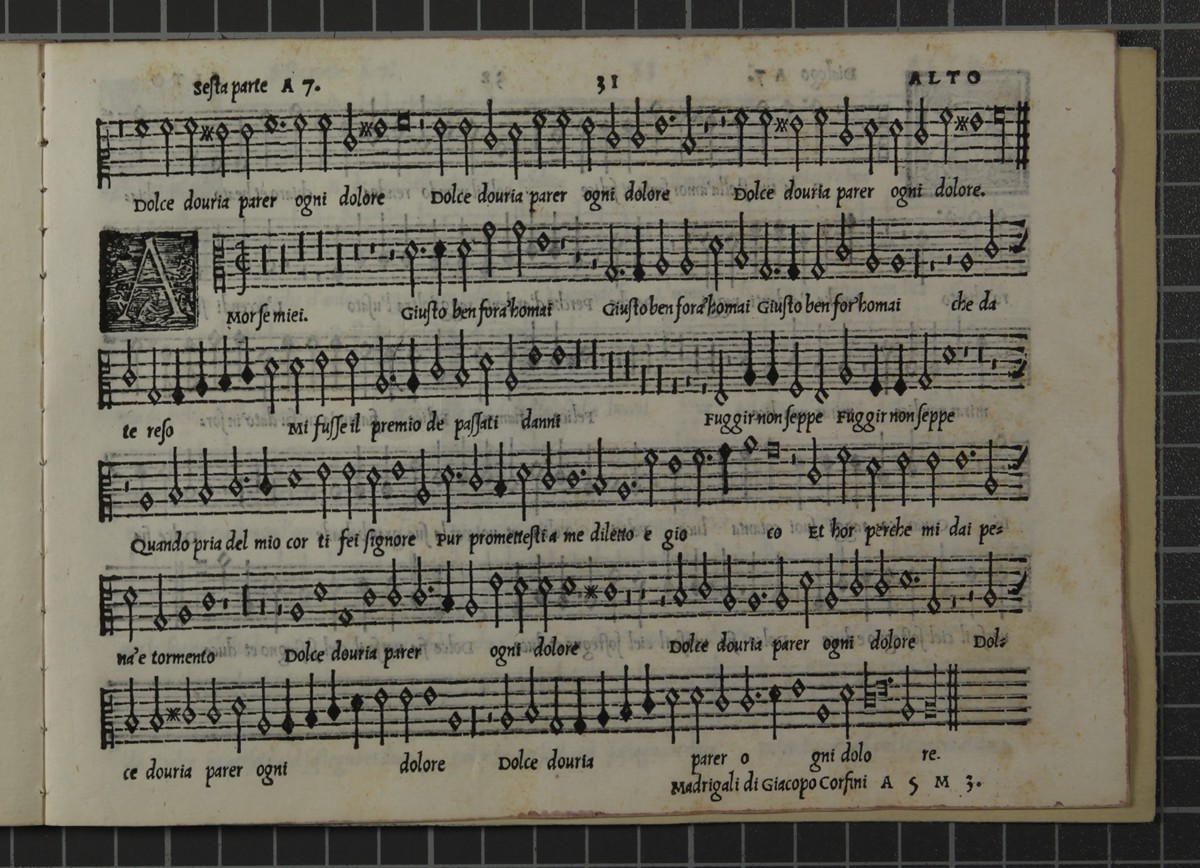 Sesta parte A 7. 31 ALTO
Dolce douria parer ogni dolore Dolce douria parer ogni dolore Dolce douria parer ogni dolore.
A Mor se miei. Giusto ben fora'homai Giusto ben fora'homai Giusto ben for'homai che da
te reso Mi fusse il premio de passati danni Fuggir non seppe Fuggir non seppe
Quando pria del mio cor ti fei signore Pur promettesti a me diletto e gio co Et hor perche mi dai pe=
na'e tormento Dolce douria parer ogni dolore Dolce douria parer ogni dolore Dol=
ce douria parer ogni dolore Dolce douria parer o gni dolo re.
Madrigali di Giacopo Corfini A 5 M 3.